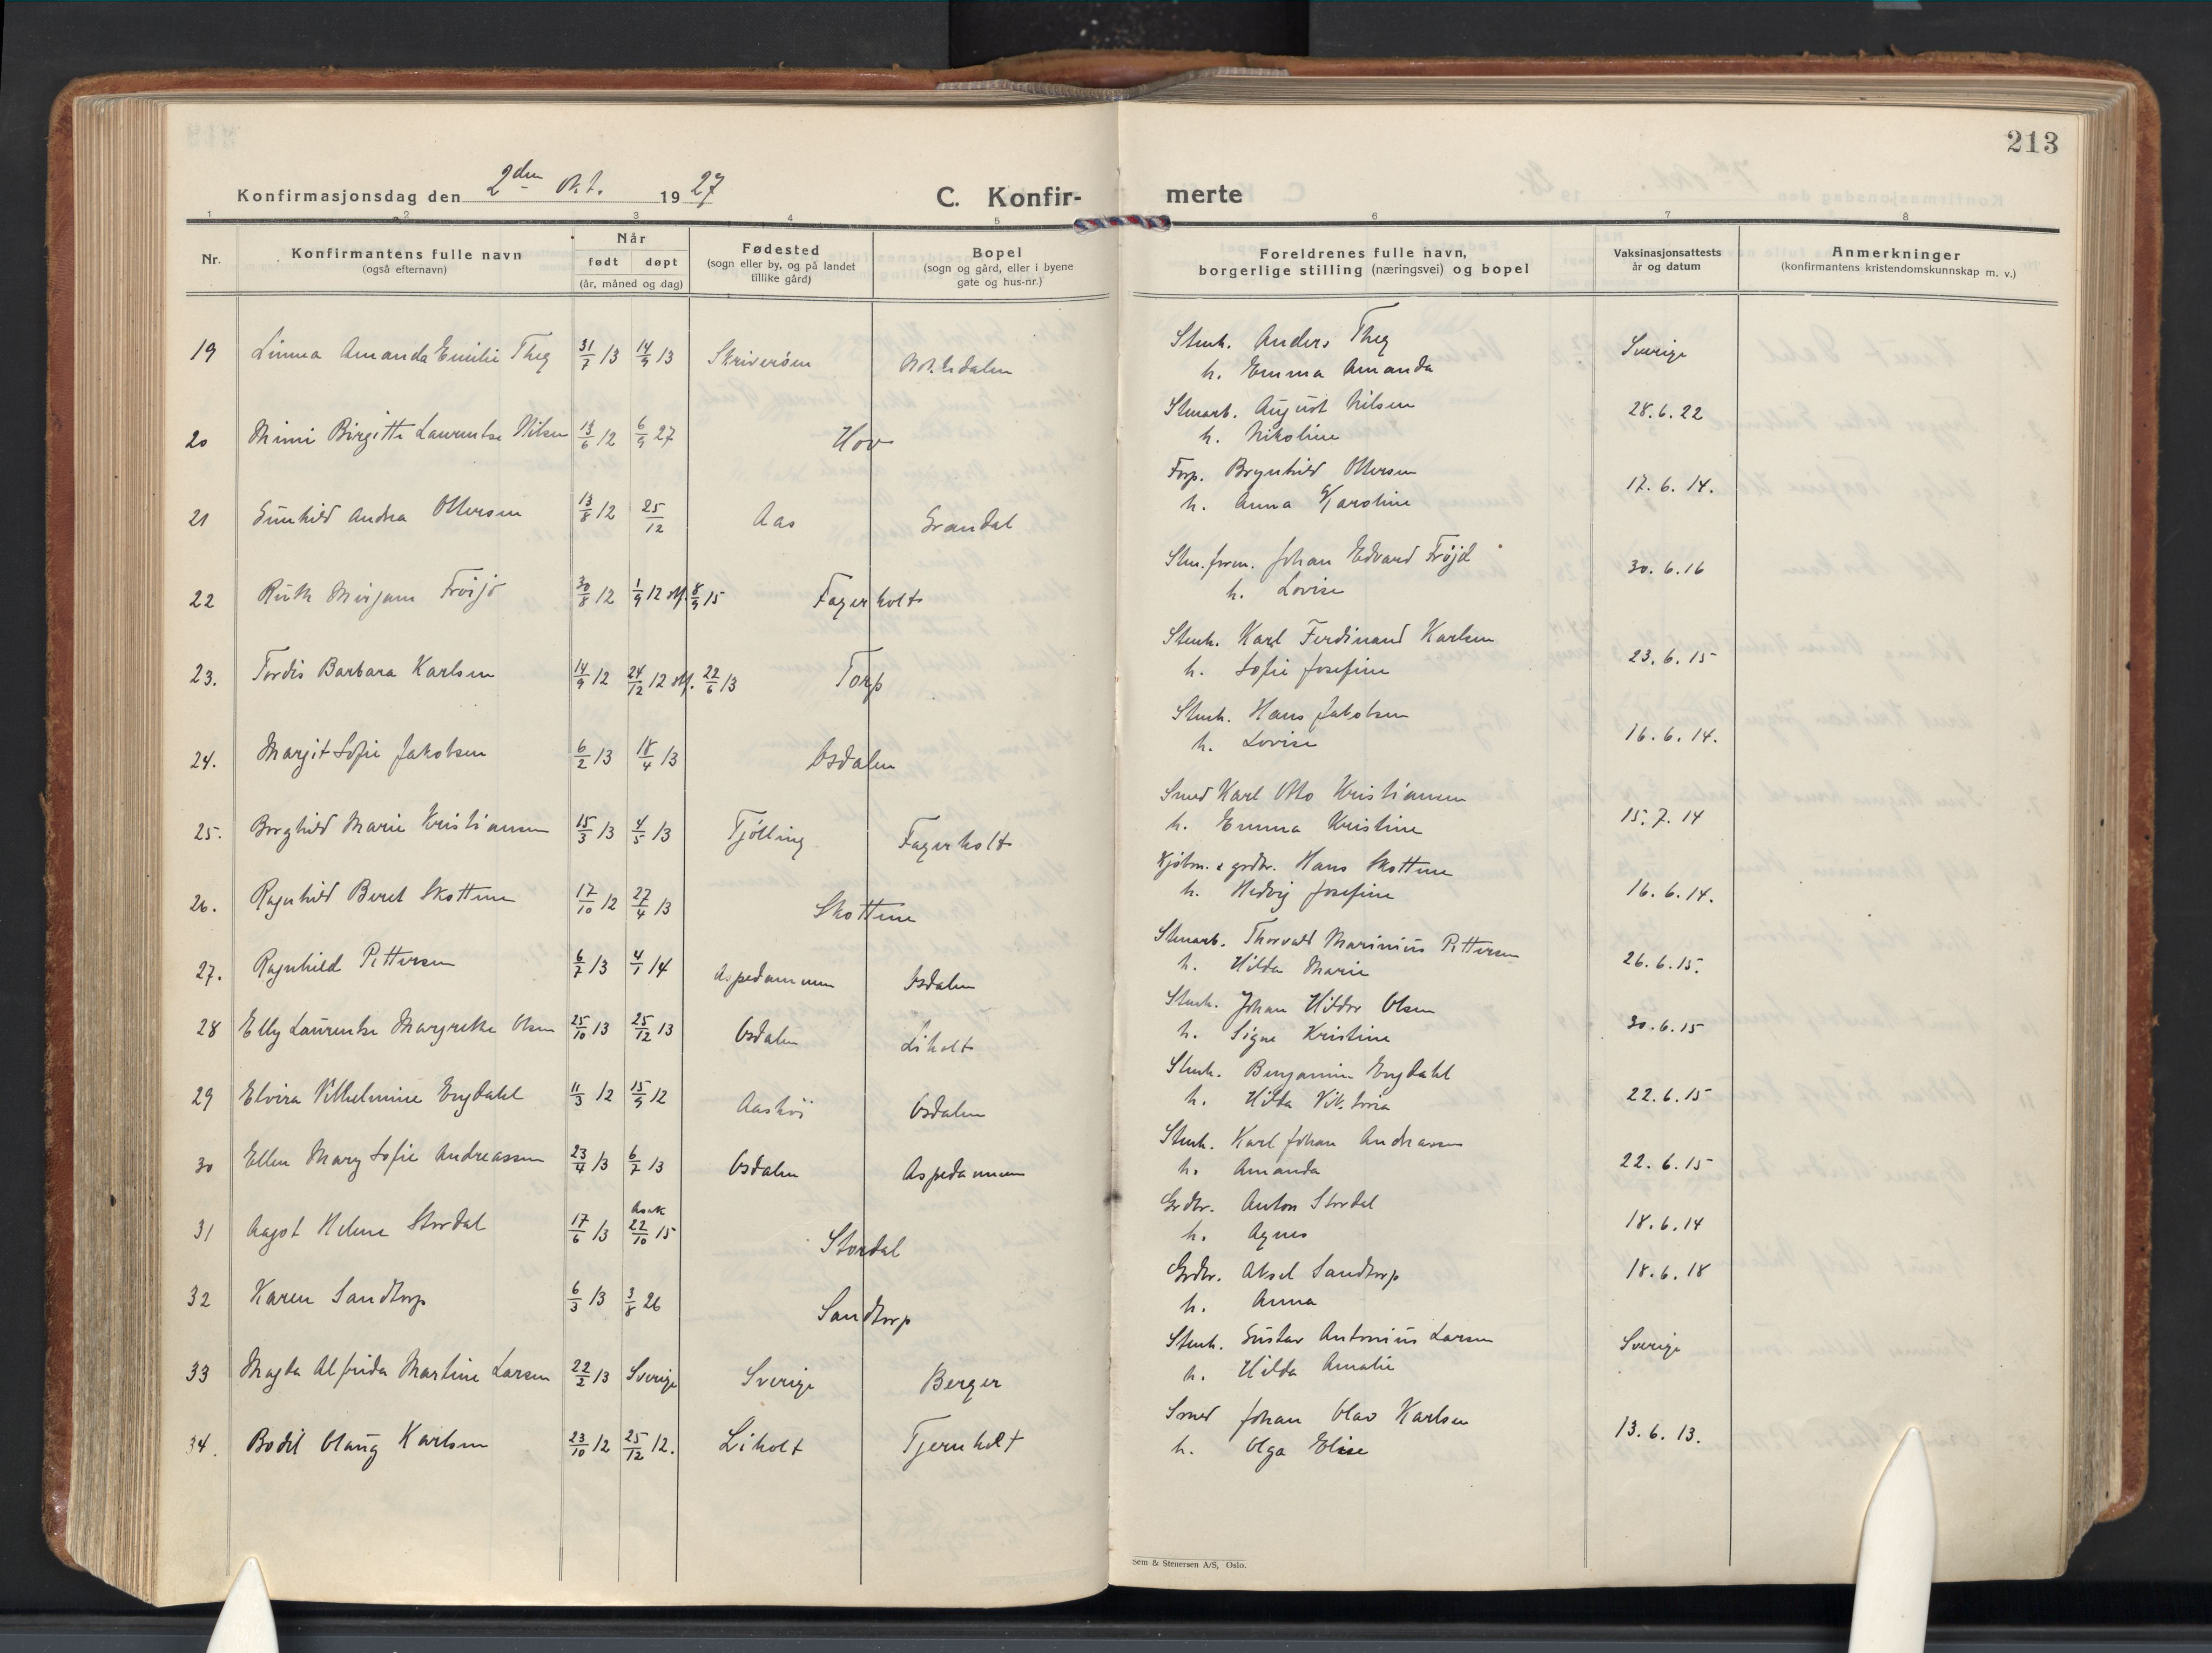 213
Konfirmasjonsdag den 2den Okt. 1927
C. Konfir-merte
1 2 3 4 5 6 7 8
Nr.
Konfirmantens fulle navn
(også efternavn)
Når
født døpt
(år, måned og dag)
Fødested
(sogn eller by, og på landet
tillike gård)
Bopel
(sogn og gård, eller i byene
gate og hus-nr.)
Foreldrenes fulle navn,
borgerlige stilling (næringsvei) og bopel
Vaksinasjonsattests
år og datum
Anmerkninger
(konfirmantens kristendomskunnskap m. v.)
19 Linnea Amanda Emilie Theg 31/7 13 14/9 13 Stenh. Anders Theg Sverige
h. Emma Amanda
20 Mimi Birgitte Laurentse Nilsen 13/6 12 6/9 27 Hov Stenarb. August Nilsen 28.6.22
h. Nikoline
21 Gunhild Andrea Ottersen 13/8 12 25/12 Aas Grandal Forp. Brynhild Ottersen 17.6.14.
h. Anna Karoline
22 Ruth Mirjam Fröijd 30/8 12 1/9 12 stf. 8/9 15 Fagerholt Sten.form. Johan Edvard Fröjd 30.6.16
h. Lovise
23. Tordis Barbara Karlsen 14/9 12 24/12 12 stf. 22/6 13 Torp Stenh. Karl Ferdinand Karlsen 23.6.15
h. Sofie Josefine
24. Margit Sofie Jakobsen 6/2 13 18/4 13 Isdalen Stenh. Hans Jakobsen 16.6.14.
h. Lovise
25. Borghild Marie Kristiansen 15/3 13 4/5 13 Tjölling Fagerholt Smed Karl Otto Kristiansen 15.7.14
h. Emma Kristine
26. Ragnhild Beret Skottene 17/10 12 27/4 13 Skottene Kjöbm. & grdbr. Hans Skottene 16.6.14.
h. Hedvig Josefine
27. Ragnhild Pettersen 6/7 13 4/1 14 Aspedammen Isdalen Stenarb. Thorvald Marinius Pettersen 26.6.15.
h. Hilda Marie
28 Elly Laurentse Margrethe Olsen 25/10 13 25/12 13 Isdalen Liholt Stenh. Johan Hildor Olsen 30.6.15
h. Signe Kristine
29 Elvira Vilhelmine Engdahl 11/3 12 15/9 12 Isdalen Stenh. Benjamin Engdahl 22.6.15
h. Hilda Viktoria
30 Ellen Mary Sofie Andreassen 23/4 13 6/7 13 Isdalen Aspedammen Stenh. Karl Johan Andreassen 22.6.15
h. Amanda
31 Aagot Helene Stordal 17/6 13 Asak 22/10 15 Stordal Grdbr. Anton Stordal 18.6.14
h. Agnes
32 Karen Sandtorp 6/3 13 3/8 26 Sandtorp Grdbr. Aksel Sandtorp 18.6.18
h. Anna
33 Magda Alfrida Martine Larsen 22/2 13 Sverige Sverige Berger Stenh. Gustav Antonius Larsen Sverige
h. Hilda Amalie
34. Bodil Olaug Karlsen 23/10 12 25/12 12. Liholt Tjernholt Smed Johan Olav Karlsen 13.6.13.
h. Olga Elise
Sem & Stenersen A/S, Oslo.